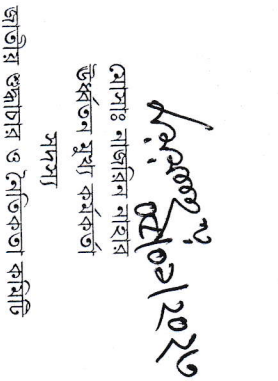 মোসাঃ নাজনিন নাহার
উর্ধ্বতন মুখ্য কর্মকর্তা
সদস্য
জাতীয় শুদ্ধাচার ও নৈতিকতা কমিটি